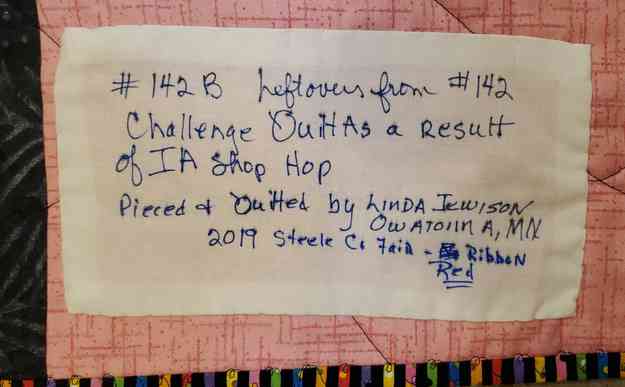 #142B Leftovers from #142
Challenge Quilt As a Result
of IA Shop Hop
Pieced & Quilted by LINDA JEWISON
OWATONNA, MN
2019 Steele Co Fair - Ribbon
Red